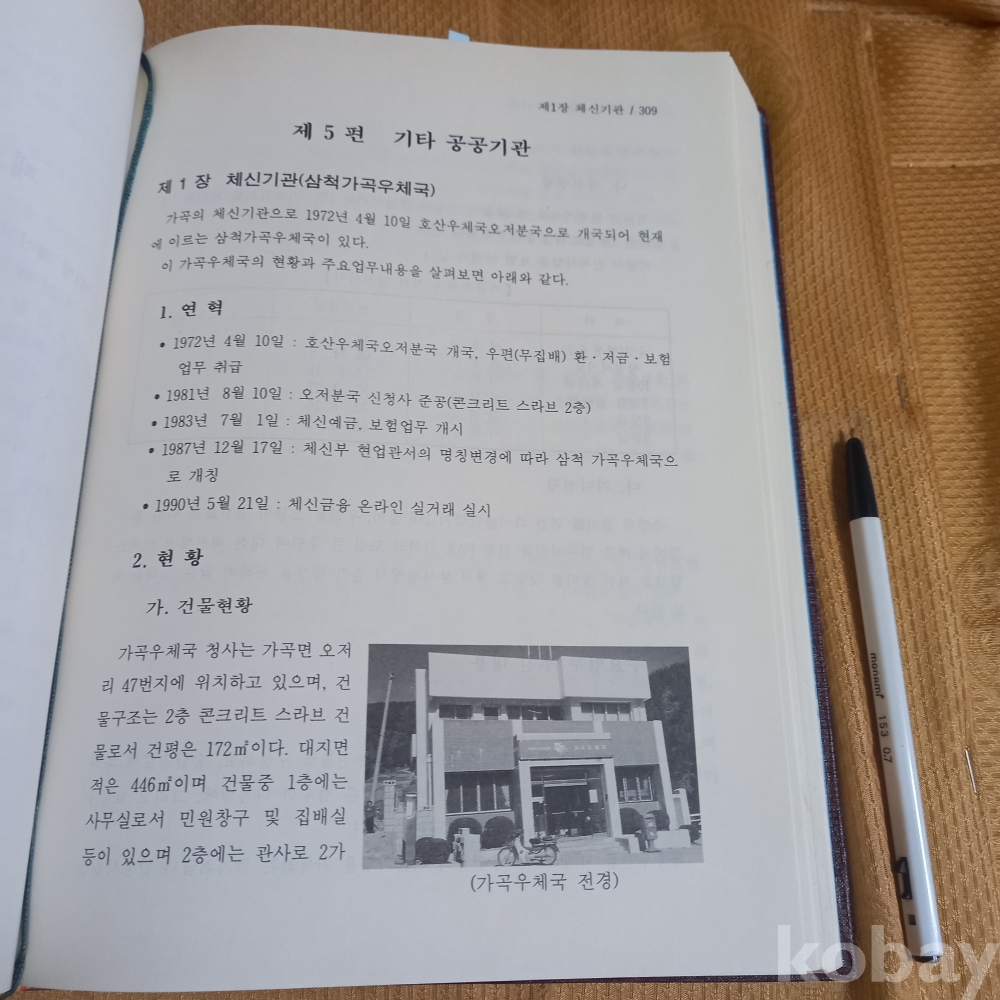 제1장 체신기관 / 309
제 5 편 기타 공공기관
제 1 장 체신기관(삼척가곡우체국)
가곡의 체신기관으로 1972년 4월 10일 호산우체국오저분국으로 개국되어 현재
에 이르는 삼척가곡우체국이 있다.
이 가곡우체국의 현황과 주요업무내용을 살펴보면 아래와 같다.
1. 연 혁
• 1972년 4월 10일 : 호산우체국오저분국 개국, 우편(무집배) 환·저금·보험
업무 취급
• 1981년 8월 10일 : 오저분국 신청사 준공(콘크리트 스라브 2층)
• 1983년 7월 1일 : 체신예금, 보험업무 개시
• 1987년 12월 17일 : 체신부 현업관서의 명칭변경에 따라 삼척 가곡우체국으
로 개칭
• 1990년 5월 21일 : 체신금융 온라인 실거래 실시
2. 현 황
가. 건물현황
가곡우체국 청사는 가곡면 오저
리 47번지에 위치하고 있으며, 건
물구조는 2층 콘크리트 스라브 건
물로서 건평은 172㎡이다. 대지면
적은 446㎡이며 건물중 1층에는
사무실로서 민원창구 및 집배실
등이 있으며 2층에는 관사로 2가
(가곡우체국 전경)
monami 153 0.7
kobay